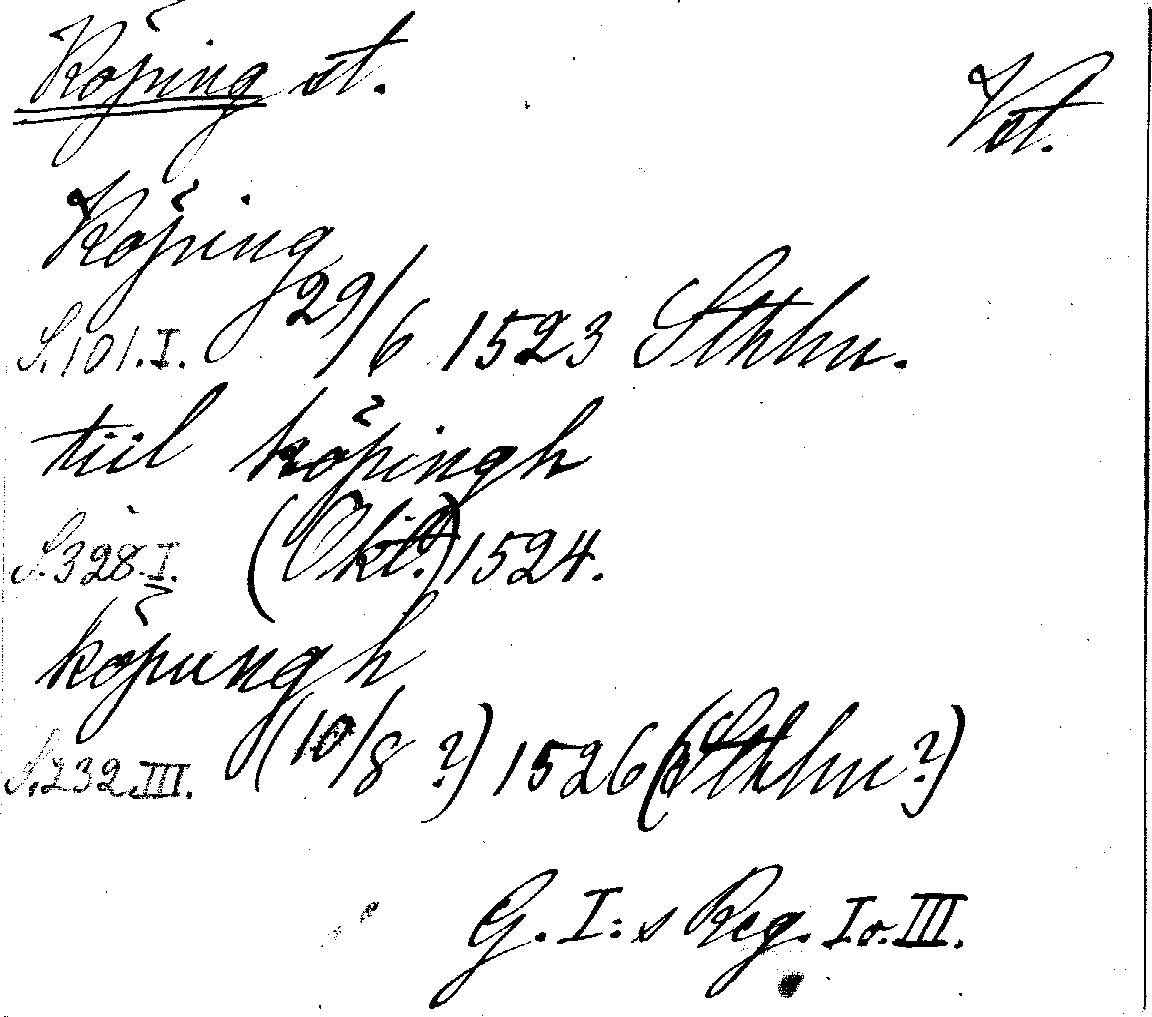 Köping st.
Vst.
Köping
S. 101. I. 29/6 1523 Sthlm.
tiil köpingh
S. 328. I. (Okt.) 1524.
köpungh
S. 232 III. (10/8 ?) 1526 (Sthlm ?)
G. I:s Reg. I o. III.